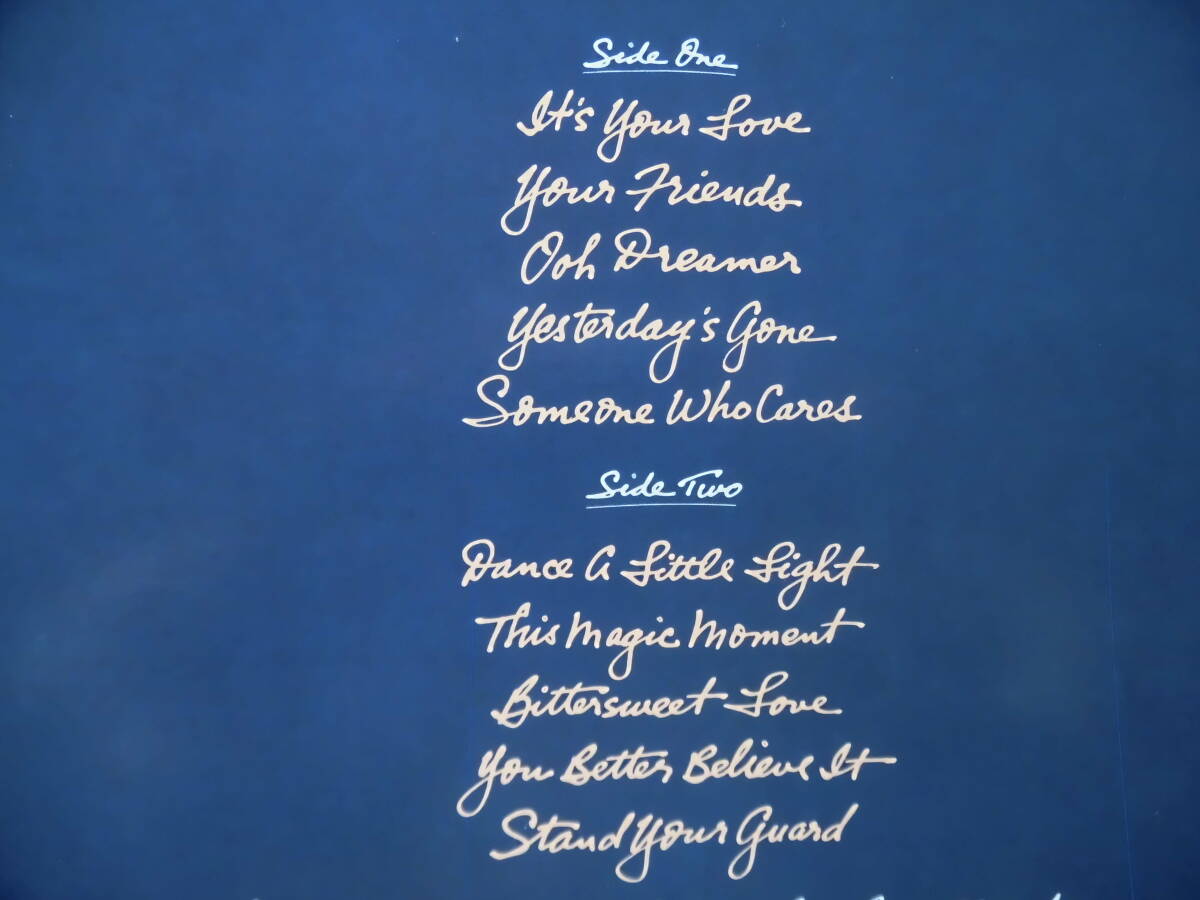 Side One
It's Your Love
Your Friends
Ooh Dreamer
Yesterday's Gone
Someone Who Cares
Side Two
Dance A Little Light
This Magic Moment
Bittersweet Love
You Better Believe It
Stand Your Guard